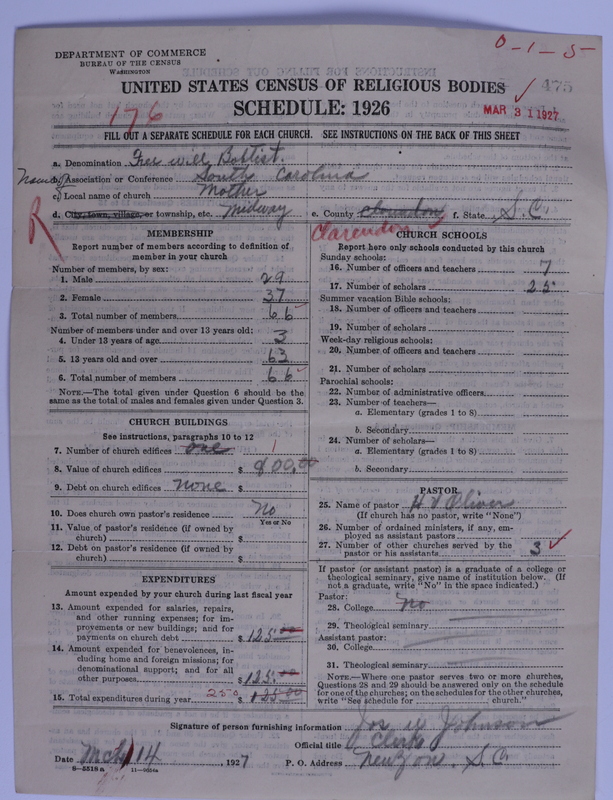 DEPARTMENT OF COMMERCE
BUREAU OF THE CENSUS
WASHINGTON
0-1-5
475
UNITED STATES CENSUS OF RELIGIOUS BODIES
SCHEDULE: 1926
MAR 31 1927
176
FILL OUT A SEPARATE SCHEDULE FOR EACH CHURCH. SEE INSTRUCTIONS ON THE BACK OF THIS SHEET
a. Denomination Free will Baptist.
b. Association or Conference South Carolina
c. Local name of church Mother
d. City, town, village, or township, etc. Midway e. County Clarendon f. State S.C
R
Clarendon
MEMBERSHIP
Report number of members according to definition of member in your church
Number of members, by sex:
1. Male 29
2. Female 37
3. Total number of members 66
Number of members under and over 13 years old:
4. Under 13 years of age 3
5. 13 years old and over 63
6. Total number of members 66
NOTE.—The total given under Question 6 should be the same as the total of males and females given under Question 3.
CHURCH BUILDINGS
See instructions, paragraphs 10 to 12
7. Number of church edifices one 1
8. Value of church edifices $ 800.00
9. Debt on church edifices none $
10. Does church own pastor's residence No
Yes or No
11. Value of pastor's residence (if owned by church) $
12. Debt on pastor's residence (if owned by church) $
EXPENDITURES
Amount expended by your church during last fiscal year
13. Amount expended for salaries, repairs, and other running expenses; for improvements or new buildings; and for payments on church debt $ 125.00
14. Amount expended for benevolences, including home and foreign missions; for denominational support; and for all other purposes $ 125.00
15. Total expenditures during year 250 $ 125.00
CHURCH SCHOOLS
Report here only schools conducted by this church
Sunday schools:
16. Number of officers and teachers 7
17. Number of scholars 25
Summer vacation Bible schools:
18. Number of officers and teachers
19. Number of scholars
Week-day religious schools:
20. Number of officers and teachers
21. Number of scholars
Parochial schools:
22. Number of administrative officers
23. Number of teachers—
a. Elementary (grades 1 to 8)
b. Secondary
24. Number of scholars—
a. Elementary (grades 1 to 8)
b. Secondary
PASTOR
25. Name of pastor Oliver
(If church has no pastor, write "None")
26. Number of ordained ministers, if any, employed as assistant pastors
27. Number of other churches served by the pastor or his assistants 3
If pastor (or assistant pastor) is a graduate of a college or theological seminary, give name of institution below. (If not a graduate, write "No" in the space indicated.)
Pastor:
28. College No
29. Theological seminary
Assistant pastor:
30. College
31. Theological seminary
NOTE.—Where one pastor serves two or more churches, Questions 28 and 29 should be answered only on the schedule for one of the churches; on the schedules for the other churches, write "See schedule for church."
Signature of person furnishing information Johnson
Official title Clerk
Date Mch 14, 1927 P. O. Address S.C.
9-5518a 11-9664a